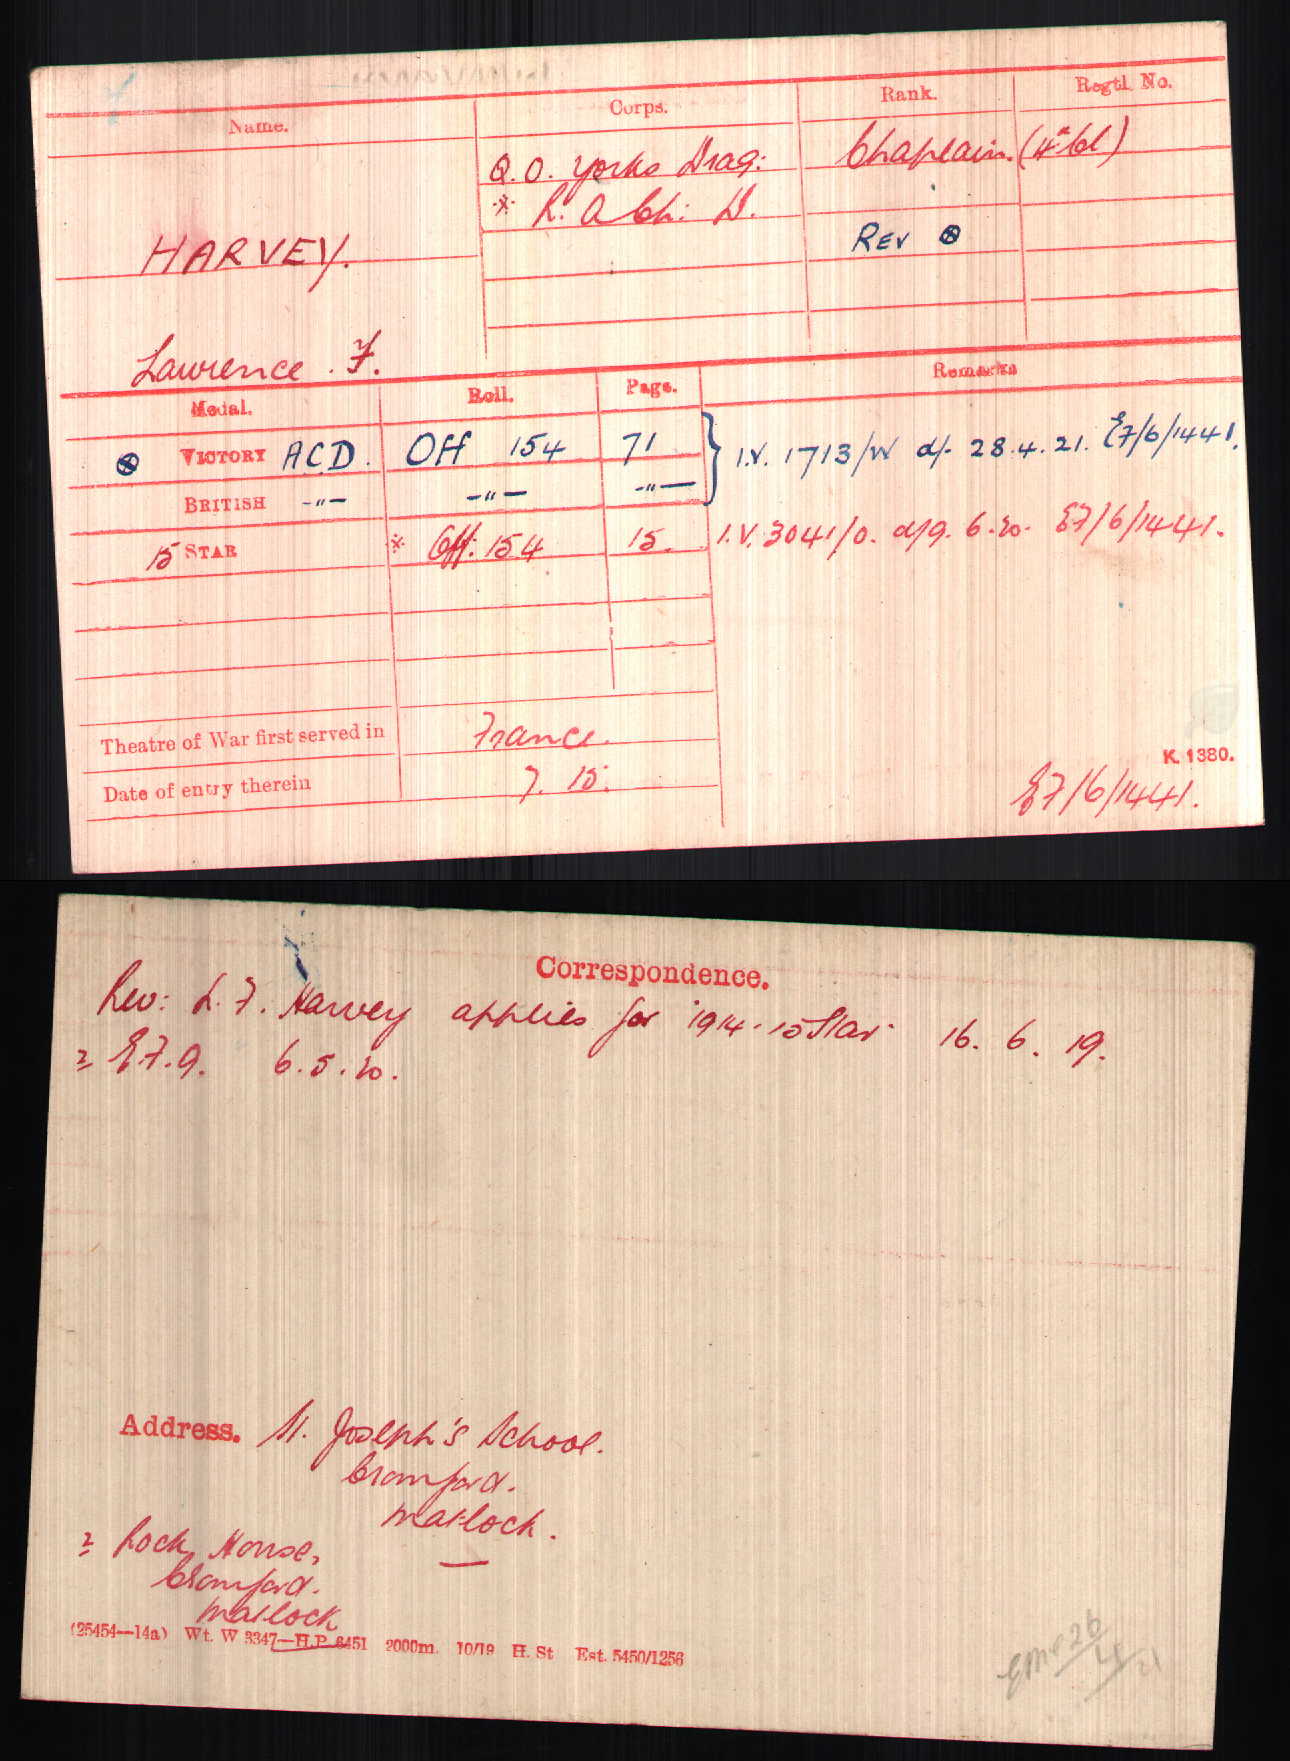 Name. Corps. Rank. Regtl. No.
Q. O. Yorks Drag: Chaplain. (4th Cl)
※ R. A Ch: D.
HARVEY. REV ⊗
Lawrence. F.
Medal. Roll. Page. Remarks
⊗ VICTORY ACD. Off 154 71 } I.V. 1713/W d/- 28.4.21. E7/6/1441.
BRITISH -"- -"- -"-
15 STAR ※ Off. 154 15. I.V. 3041/O. d/9. 6.20. E7/6/1441.
Theatre of War first served in France.
Date of entry therein 7. 15.
K. 1380.
E7/6/1441.
Correspondence.
Rev: L. F. Harvey applies for 1914-15 Star 16. 6. 19.
2 E.F.9. 6.5.20.
Address. St. Joseph's School.
Cromford.
Matlock.
2 Rock House,
Cromford.
Matlock
(25454—14a) Wt. W 3347—H.P. 6451 2000m. 10/19 H. St Est. 5450/1256